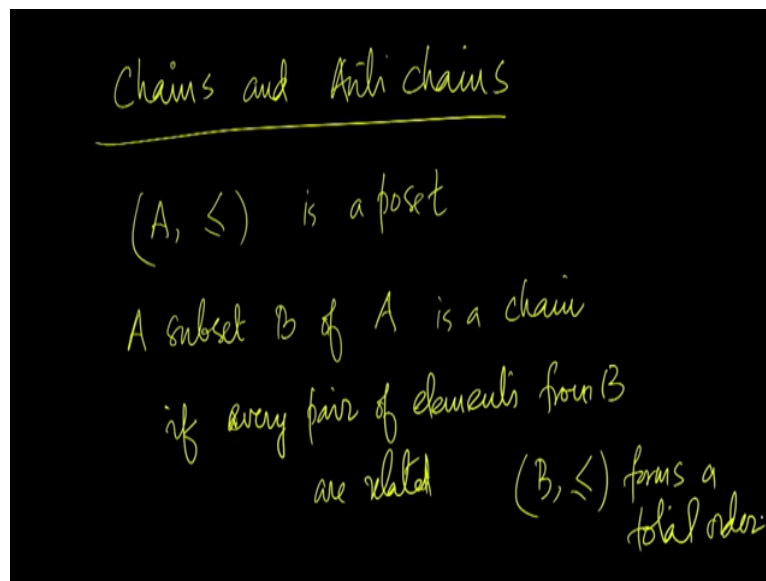 Chains and Anti chains
(A, ≤) is a poset
A subset B of A is a chain
if every pair of elements from B
are related (B, ≤) forms a
total order.